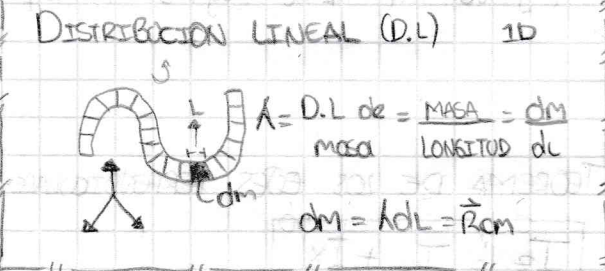 DISTRIBUCION LINEAL (D.L) 1D
λ = D.L de masa = MASA / LONGITUD = dm / dL
L
dm
dm = λdL = R⃗cm